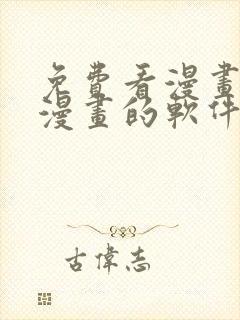 免費看漫畫
漫畫的軟件
古偉志